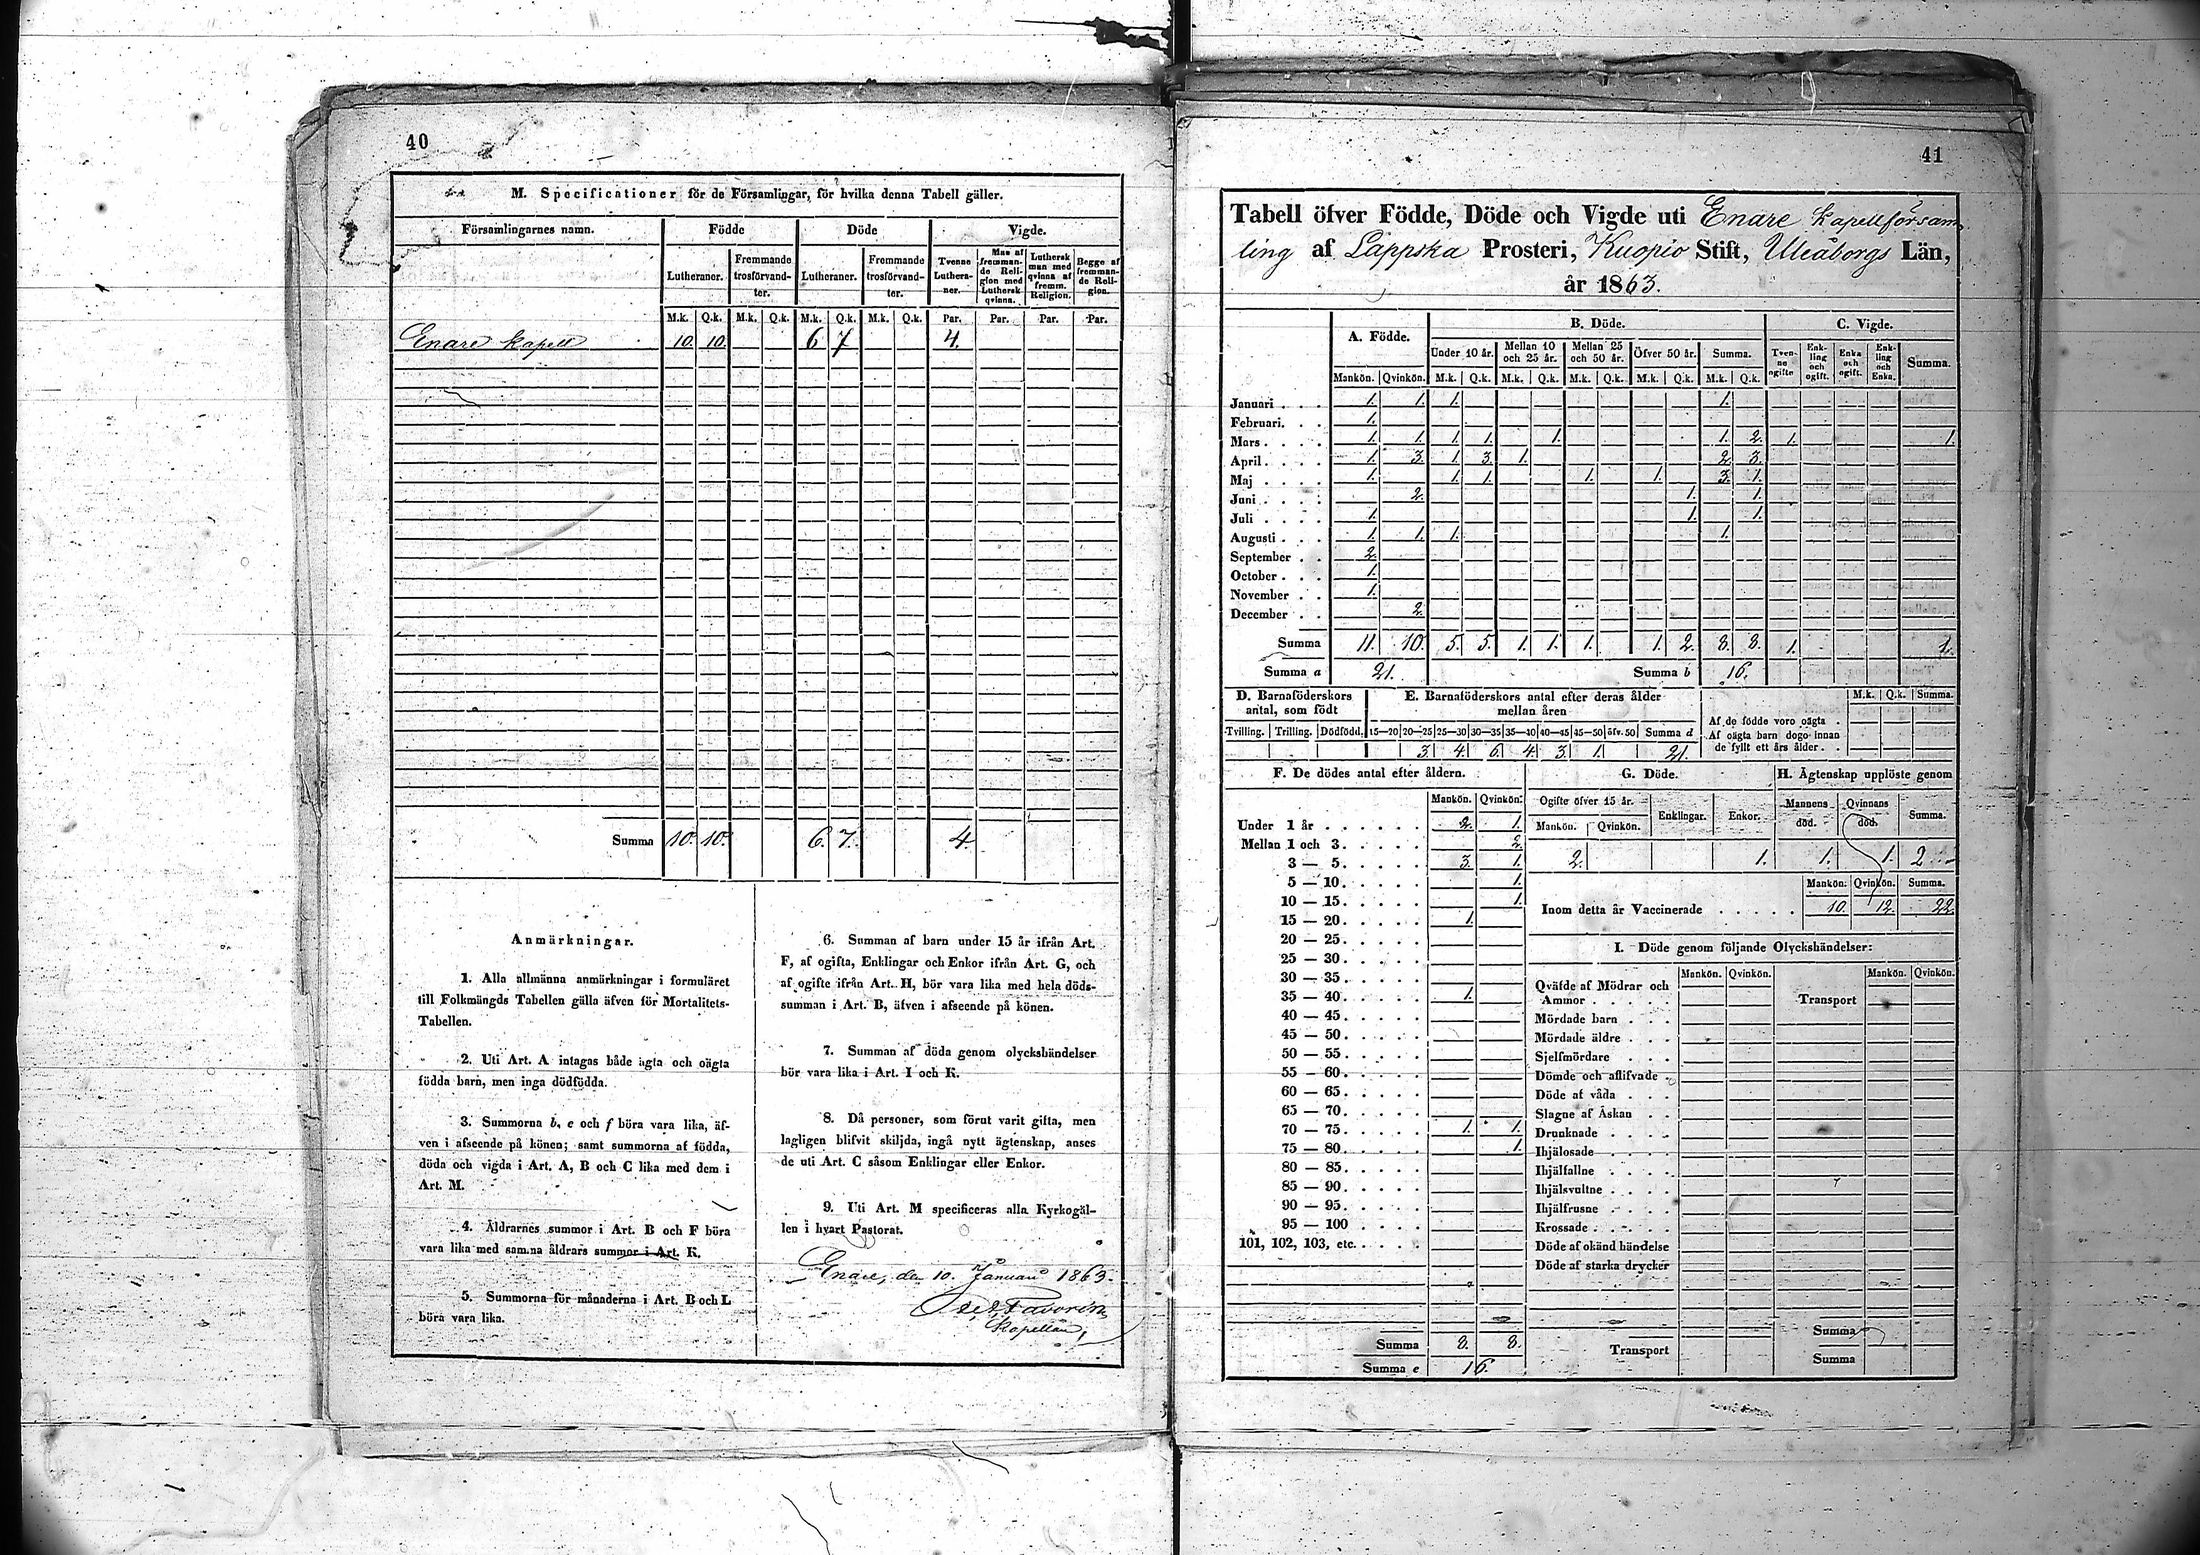 40
M. Specificationer för de Församlingar, för hvilka denna Tabell gäller.
Församlingarnes namn. Födde Döde Vigde.
Lutheraner. Fremmande trosförvandter. Lutheraner. Fremmande trosförvandter. Tvenne Lutheraner. Man af fremmande Religion med Luthersk qvinna. Luthersk man med qvinna af fremm. Religion. Begge af fremmande Religion.
M.k. Q.k. M.k. Q.k. M.k. Q.k. M.k. Q.k. Par. Par. Par. Par.
Enare kapell 10. 10. 6 7 4.
Summa 10. 10. 6. 7. 4.
Anmärkningar.
1. Alla allmänna anmärkningar i formuläret
till Folkmängds Tabellen gälla äfven för Mortalitets-
Tabellen.
2. Uti Art. A intagas både ägta och oägta
födda barn, men inga dödfödda.
3. Summorna b, e och f böra vara lika, äf-
ven i afseende på könen; samt summorna af födda,
döda och vigda i Art. A, B och C lika med dem i
Art. M.
4. Äldrarnes summor i Art. B och F böra
vara lika med samma åldrars summor i Art. K.
5. Summorna för månaderna i Art. B och L
böra vara lika.
6. Summan af barn under 15 år ifrån Art.
F, af ogifta, Enklingar och Enkor ifrån Art. G, och
af ogifte ifrån Art. H, bör vara lika med hela döds-
summan i Art. B, äfven i afseende på könen.
7. Summan af döda genom olyckshändelser
bör vara lika i Art. I och K.
8. Då personer, som förut varit gifta, men
lagligen blifvit skiljda, ingå nytt ägtenskap, anses
de uti Art. C såsom Enklingar eller Enkor.
9. Uti Art. M specificeras alla Kyrkogäl-
len i hvart Pastorat.
Enare, den 10. Januari 1863.
Kapellan,
41
Tabell öfver Födde, Döde och Vigde uti Enare kapellförsam
ling af Lappska Prosteri, Kuopio Stift, Uleåborgs Län,
år 1863.
A. Födde. B. Döde. C. Vigde.
Under 10 år. Mellan 10 och 25 år. Mellan 25 och 50 år. Öfver 50 år. Summa. Tvenne ogifte Enkling och ogift. Enka och ogift. Enkling och Enka. Summa.
Mankön. Qvinkön. M.k. Q.k. M.k. Q.k. M.k. Q.k. M.k. Q.k. M.k. Q.k.
Januari 1. 1. 1. 1.
Februari. 1.
Mars 1. 1. 1. 1. 1. 1. 2. 1. 1.
April 1. 3. 1. 3. 1. 2. 3.
Maj 1. 1. 1. 1. 1. 3. 1.
Juni 2. 1. 1.
Juli 1. 1. 1.
Augusti 1. 1. 1. 1.
September 2.
October 1.
November 1.
December 2.
Summa 11. 10. 5. 5. 1. 1. 1. 1. 2. 8. 8. 1. 1.
Summa a 21. Summa b 16.
D. Barnaföderskors antal, som födt
Tvilling. Trilling. Dödfödd.
E. Barnaföderskors antal efter deras ålder mellan åren
15—20 20—25 25—30 30—35 35—40 40—45 45—50 öfv. 50 Summa d
3. 4. 6. 4. 3. 1. 21.
M.k. Q.k. Summa.
Af de födde voro oägta .
Af oägta barn dogo innan
de fyllt ett års ålder . .
F. De dödes antal efter åldern.
Mankön. Qvinkön.
Under 1 år 2. 1.
Mellan 1 och 3 2.
3 — 5 3. 1.
5 — 10 1.
10 — 15 1.
15 — 20 1.
20 — 25
25 — 30
30 — 35
35 — 40 1.
40 — 45
45 — 50
50 — 55
55 — 60
60 — 65
65 — 70
70 — 75 1. 1.
75 — 80 1.
80 — 85
85 — 90
90 — 95
95 — 100
101, 102, 103, etc.
Summa 8. 8.
Summa e 16.
G. Döde.
Ogifte öfver 15 år. Enklingar. Enkor.
Mankön. Qvinkön.
2. 1.
H. Ägtenskap upplöste genom
Mannens död. Qvinnans död. Summa.
1. 1. 2
Mankön. Qvinkön. Summa.
Inom detta år Vaccinerade 10. 12. 22.
I. Döde genom följande Olyckshändelser:
Mankön. Qvinkön. Mankön. Qvinkön.
Qväfde af Mödrar och
Ammor Transport
Mördade barn
Mördade äldre
Sjelfmördare
Dömde och aflifvade
Döde af våda
Slagne af Åskan
Drunknade
Ihjälosade
Ihjälfallne
Ihjälsvultne
Ihjälfrusne
Krossade
Döde af okänd händelse
Döde af starka drycker
Summa
Transport
Summa